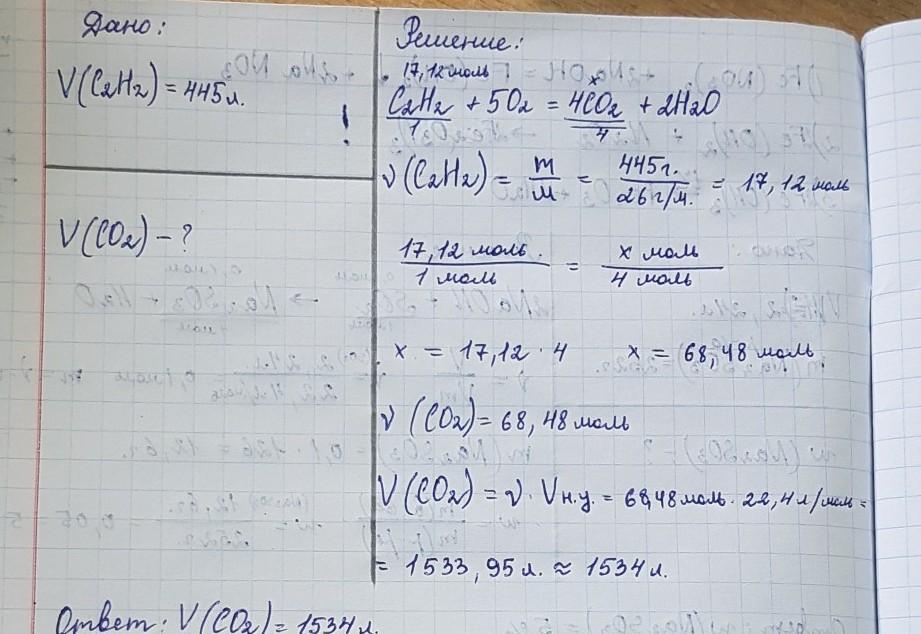 Дано:
V(C2H2) = 445 л.
!
V(CO2) - ?
Решение:
17,12 моль x
C2H2 + 5O2 = 4CO2 + 2H2O
1 4
ν(C2H2) = m/M = 445 г./26 г/м. = 17,12 моль
17,12 моль./1 моль = x моль/4 моль
x = 17,12 · 4 x = 68,48 моль
ν (CO2) = 68,48 моль
V(CO2) = ν · Vн.у. = 68,48 моль · 22,4 л/моль =
= 1533,95 л. ≈ 1534 л.
Ответ: V(CO2) = 1534 л.